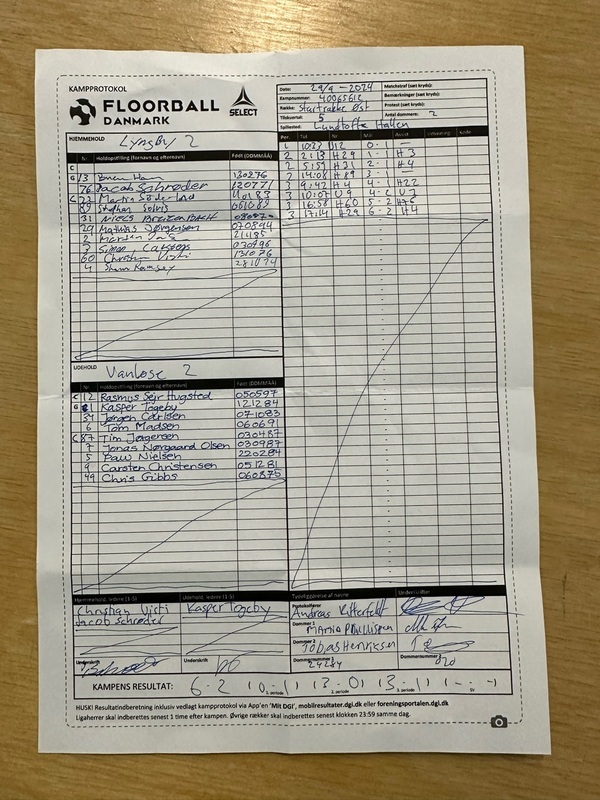 KAMPPROTOKOL
FLOORBALL
DANMARK
SELECT
Dato: 29/9 - 2024
Kampnummer: 40065612
Række: Øst
Tilskuertal: 5
Spillested: Lundtofte Hallen
Matchstraf (sæt kryds):
Bemærkninger (sæt kryds):
Protest (sæt kryds):
Antal dommere: 2
HJEMMEHOLD Lyngby 2
Nr. Holdopstilling (fornavn og efternavn) Født (DDMMÅÅ)
C
G 13 130276
76 Jacob Schrøder 120771
C 23 Martin
89 Stephan
31 Niels
29 Mathias Jørgensen 070894
2 Morten
3 Simon 030996
60 Christian Visti 131076
4 281074
Per. Tid Nr. Mål Assist Udvisning Kode
1 10:27 U12 0-1 —
2 2:13 H29 1-1 H3
2 5:59 H21 2-1 H4
2 14:08 H89 3-1 —
3 9:42 H4 4-1 H22
3 10:07 U9 4-2 U7
3 16:58 H60 5-2 H76
3 17:14 H29 6-2 H4
UDEHOLD Vanløse 2
Nr. Holdopstilling (fornavn og efternavn) Født (DDMMÅÅ)
C 12 Rasmus Sejr Hugsted 050597
G Kasper Togeby 121284
34 Jørgen Carlsen 071083
6 Tom Madsen 060691
C 87 Tim Jørgensen 030487
7 Jonas Nørgaard Olsen 030987
5 Paw Nielsen 220284
9 Carsten Christensen 051281
49 Chris Gibbs 060875
Hjemmehold, ledere (1-5)
Christian Visti
Jacob Schrøder
Underskrift
Udehold, ledere (1-5)
Kasper Togeby
Underskrift
Tydeliggørelse af navne Underskrifter
Protokolfører
Andreas
Dommer 1
Dommer 2
Tobias Henriksen
Dommernummer 1
Dommernummer 2
KAMPENS RESULTAT: 6-2 (0-1) (3-0) (3-1) ( - )
1. periode 2. periode 3. periode SV
HUSK! Resultatindberetning inklusiv vedlagt kampprotokol via App'en 'Mit DGI', mobilresultater.dgi.dk eller foreningsportalen.dgi.dk
Ligaherrer skal indberettes senest 1 time efter kampen. Øvrige rækker skal indberettes senest klokken 23:59 samme dag.